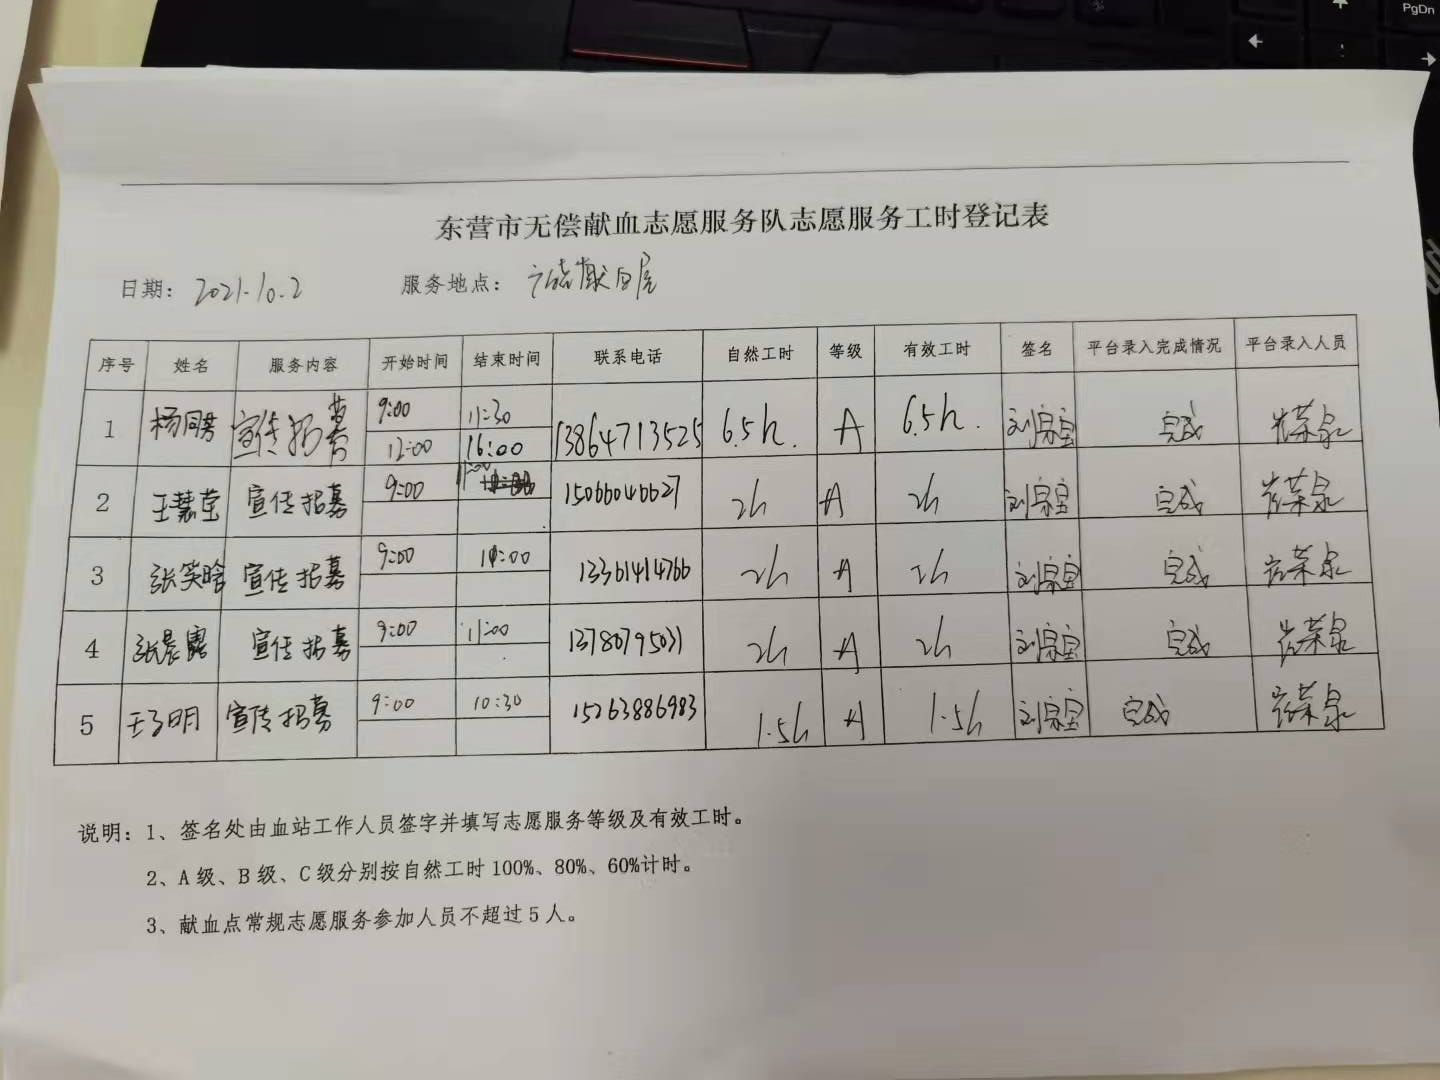 PgDn
东营市无偿献血志愿服务队志愿服务工时登记表
日期： 2021.10.2 服务地点： 献血屋
序号 姓名 服务内容 开始时间 结束时间 联系电话 自然工时 等级 有效工时 签名 平台录入完成情况 平台录入人员
1 杨同芳 宣传招募 9:00 11:30 13864713525 6.5h. A 6.5h. 刘宗宝 完成 荣泉
12:00 16:00
2 王慧莹 宣传招募 9:00 11:00 15066046627 2h A 2h 刘宗宝 完成 荣泉
3 张笑晗 宣传招募 9:00 11:00 13361414766 2h A 2h 刘宗宝 完成 荣泉
4 张晨露 宣传招募 9:00 11:00 13780795031 2h A 2h 刘宗宝 完成 荣泉
5 王子明 宣传招募 9:00 10:30 15263886983 1.5h A 1.5h 刘宗宝 完成 荣泉
说明：1、签名处由血站工作人员签字并填写志愿服务等级及有效工时。
2、A级、B级、C级分别按自然工时100%、80%、60%计时。
3、献血点常规志愿服务参加人员不超过5人。